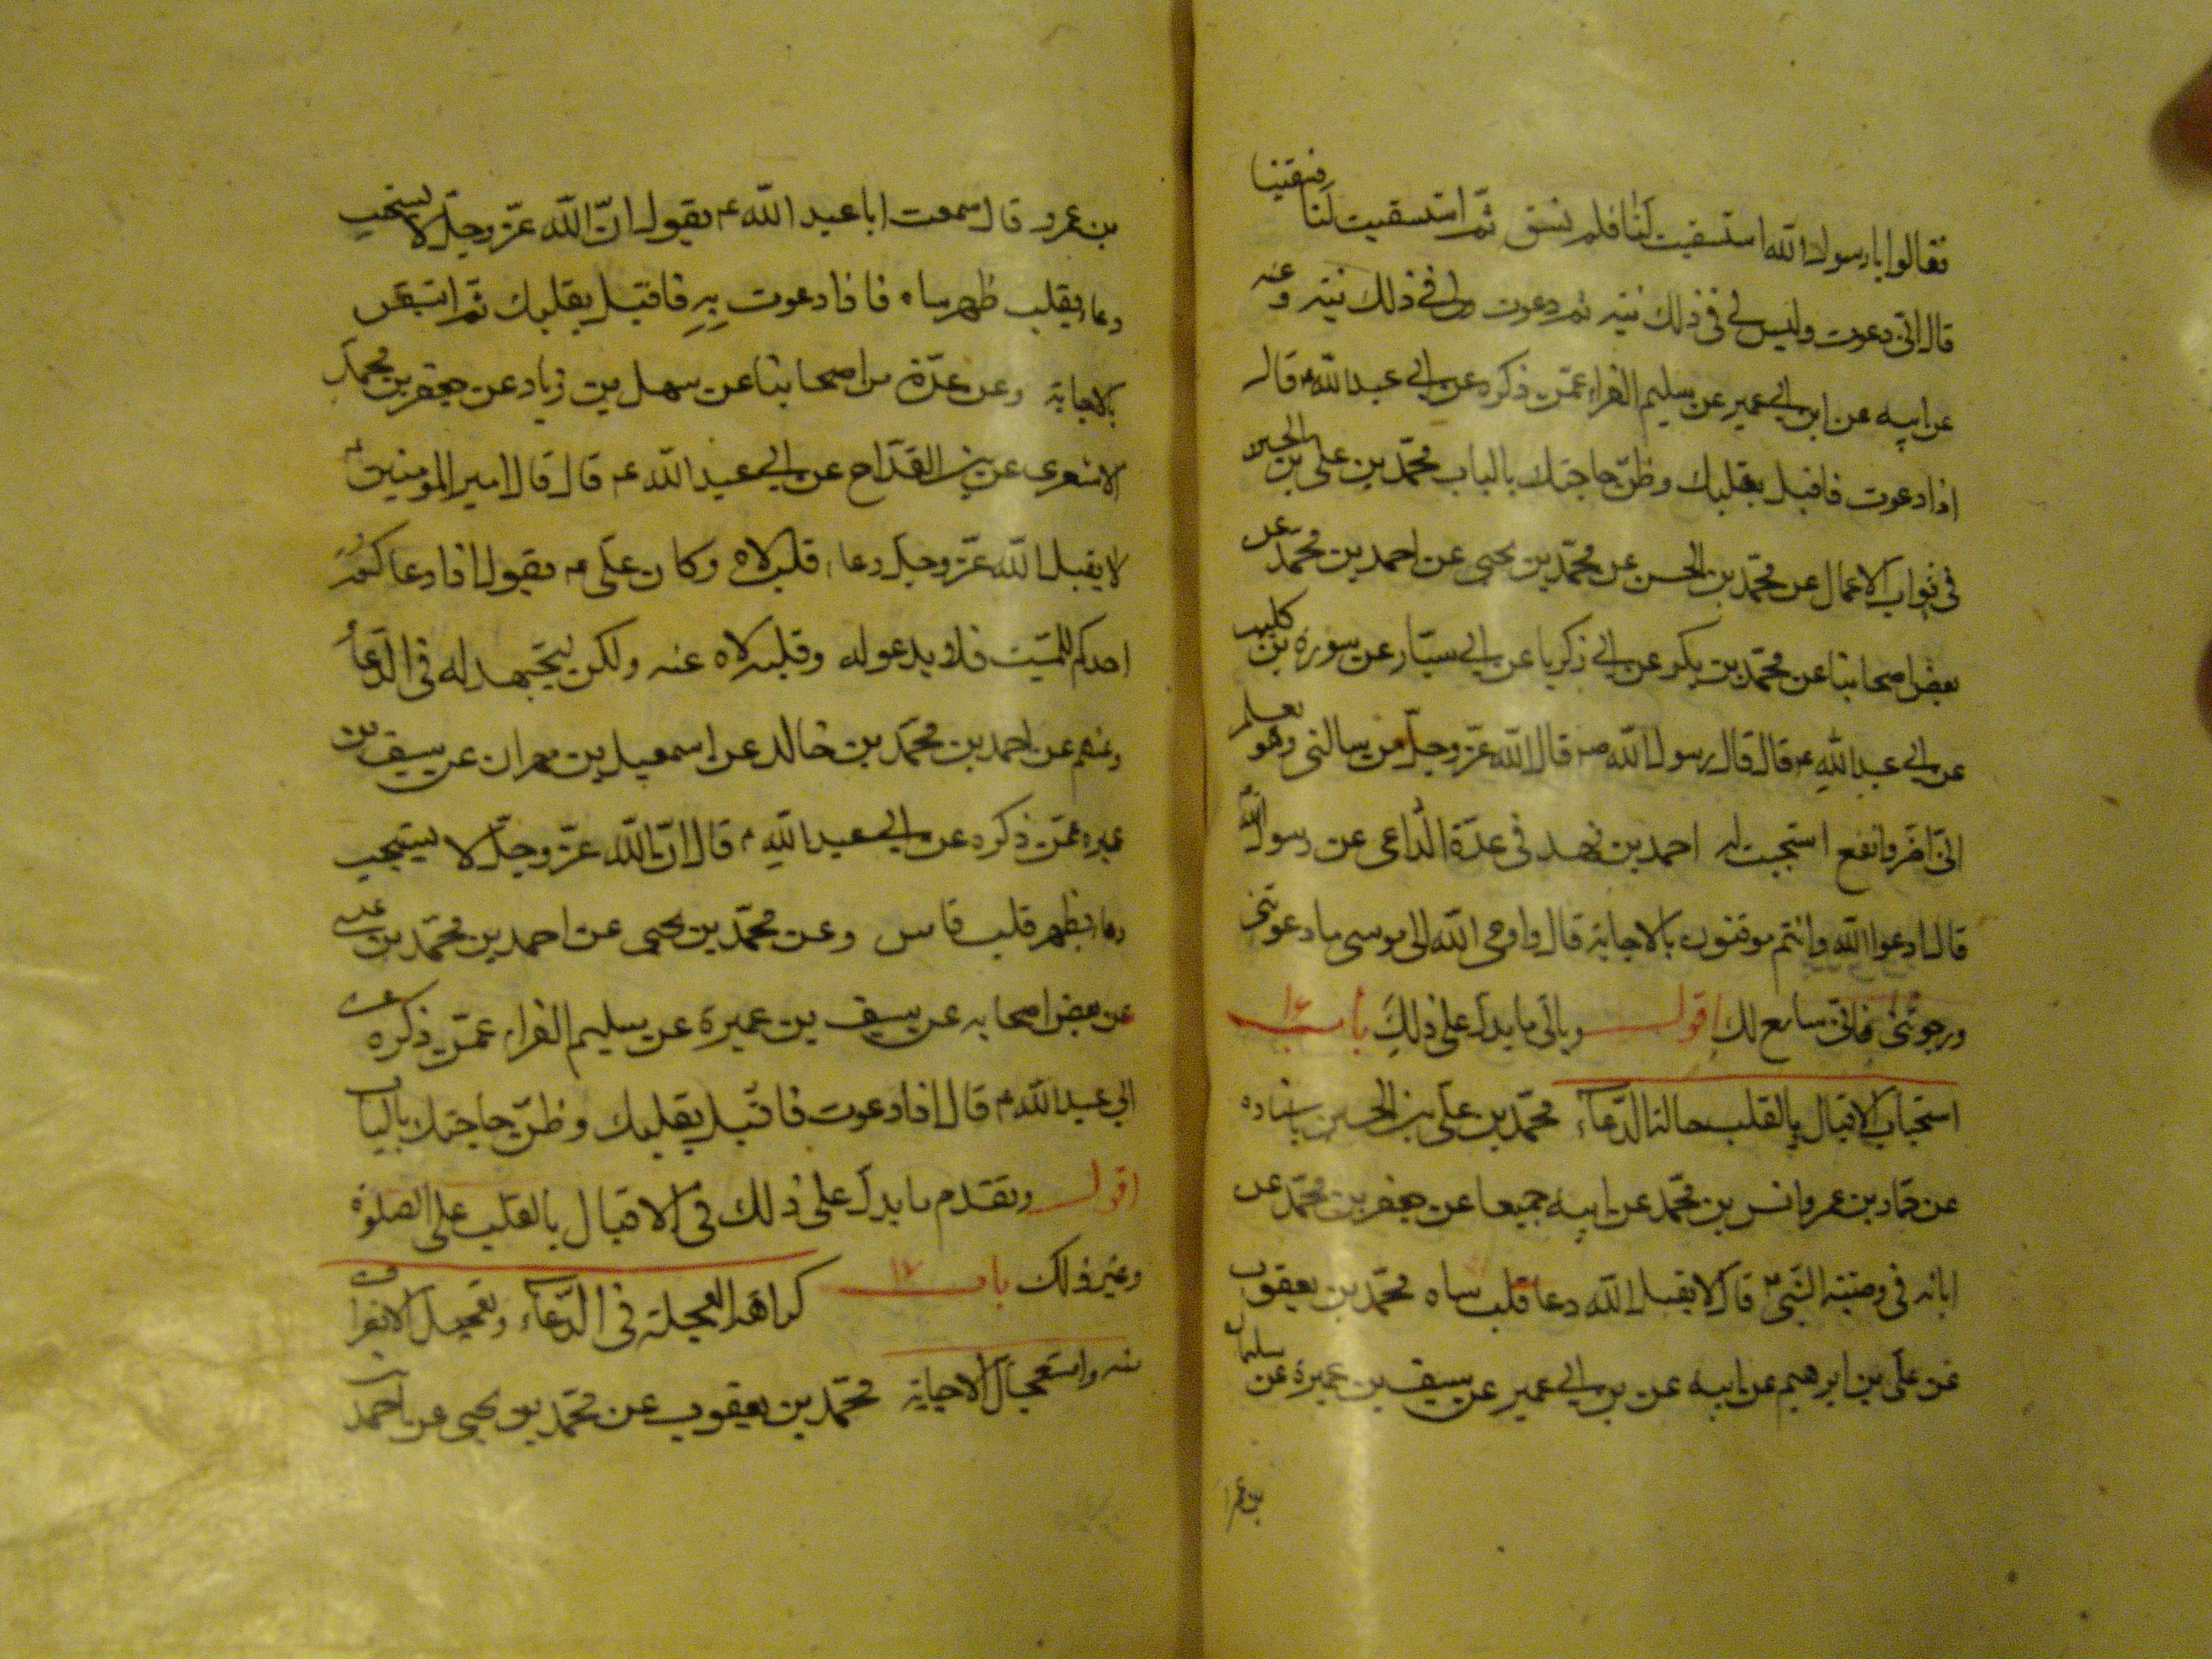 فقالوا يا رسول الله استسقيت لنا فلم نسق ثم استسقيت لنا فسقينا
قال انى دعوت وليس لى فى ذلك نيته ثم دعوت ولى فى ذلك نيته وعنه
عن ابيه عن ابن ابى عمير عن سليم الفراء عمن ذكره عن ابى عبد الله ع قال
اذا دعوت فاقبل بقلبك وظن حاجتك بالباب محمد بن على بن الحسين
فى ثواب الاعمال عن محمد بن الحسن عن محمد بن يحيى عن احمد بن محمد عن
بعض اصحابنا عن محمد بن بكر عن ابى زكريا عن ابى سيار عن سورة بن كليب
عن ابى عبد الله ع قال قال رسول الله ص قال الله عز وجل من سالنى وهو يعلم
انى اضر وانفع استجبت له احمد بن فهد فى عدة الداعى عن رسول الله
قال ادعوا الله وانتم موقنون بالاجابة قال واوحى الله الى موسى ما دعوتنى
ورجوتنى فانى سامع لك اقول وياتى ما يدل على ذلك باب ١٦
استحباب الاقبال بالقلب حالة الدعاء محمد بن على بن الحسين باسناده
عن حماد بن عمرو وانس بن محمد عن ابيه جميعا عن جعفر بن محمد عن
ابائه فى وصية النبى ص قال لا يقبل الله دعا قلب ساه محمد بن يعقوب
عن على بن ابرهيم عن ابيه عن بن ابى عمير عن سيف بن عميرة عن سليمان
بن عمرو
بن عمرو قال سمعت ابا عبد الله ع يقول ان الله عز وجل لا يستجيب
دعاء بقلب ظهر ساه فاذا دعوت به فاقبل بقلبك ثم استيقن
بالاجابة وعن عدة من اصحابنا عن سهل بن زياد عن جعفر بن محمد
الاشعرى عن بن القداح عن ابى عبد الله ع قال قال امير المومنين ع
لا يقبل الله عز وجل دعاء قلب لاه وكان على ع يقول اذا دعا
احدكم للميت فلا يدعو له وقلبه لاه عنه ولكن ليجتهد له فى الدعاء
وعنهم عن احمد بن محمد بن خالد عن اسمعيل بن مهران عن سيف بن
عميرة عمن ذكره عن ابى عبد الله ع قال ان الله عز وجل لا يستجيب
دعاء بظهر قلب قاس وعن محمد بن يحيى عن احمد بن محمد بن عيسى
عن بعض اصحابه عن سيف بن عميرة عن سليم الفراء عمن ذكره عن
ابى عبد الله ع قال اذا دعوت فاقبل بقلبك وظن حاجتك بالباب
اقول وتقدم ما يدل على ذلك فى الاقبال بالقلب على الصلوة
وغير ذلك باب ١٧ كراهة العجلة فى الدعاء وتعجيل الانصراف
منه واستعجال الاجابة محمد بن يعقوب عن محمد بن يحيى عن احمد